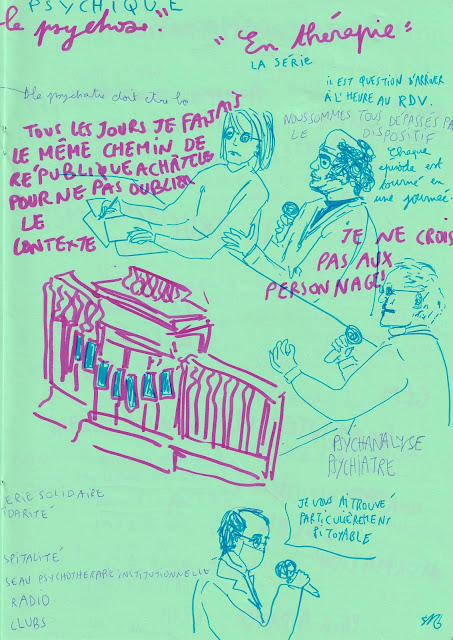 PSYCHIQUE
le psychose."
"En thérapie"
LA SÉRIE
IL EST QUESTION D'ARRIVER
À L'HEURE AU RDV.
le psychiatre doit etre
NOUS SOMMES TOUS DÉPASSÉS PA
LE DISPOSITIF
TOUS LES JOURS JE FAISAIS
LE MÊME CHEMIN DE
RÉPUBLIQUE A CHÂTELET
POUR NE PAS OUBLIER
LE
CONTEXTE
Chaque
épisode est
tourné en
une journée.
JE NE CROIS
PAS AUX
PERSONNAGES
PSYCHANALYSE
PSYCHIATRE
ERIE SOLIDAIRE
DARITÉ
JE VOUS AI TROUVÉ
PARTICULIÈREMENT
PITOYABLE
SPITALITÉ
SEAU PSYCHOTHERAPIE INSTITUTIONNELLE
RADIO
CLUBS